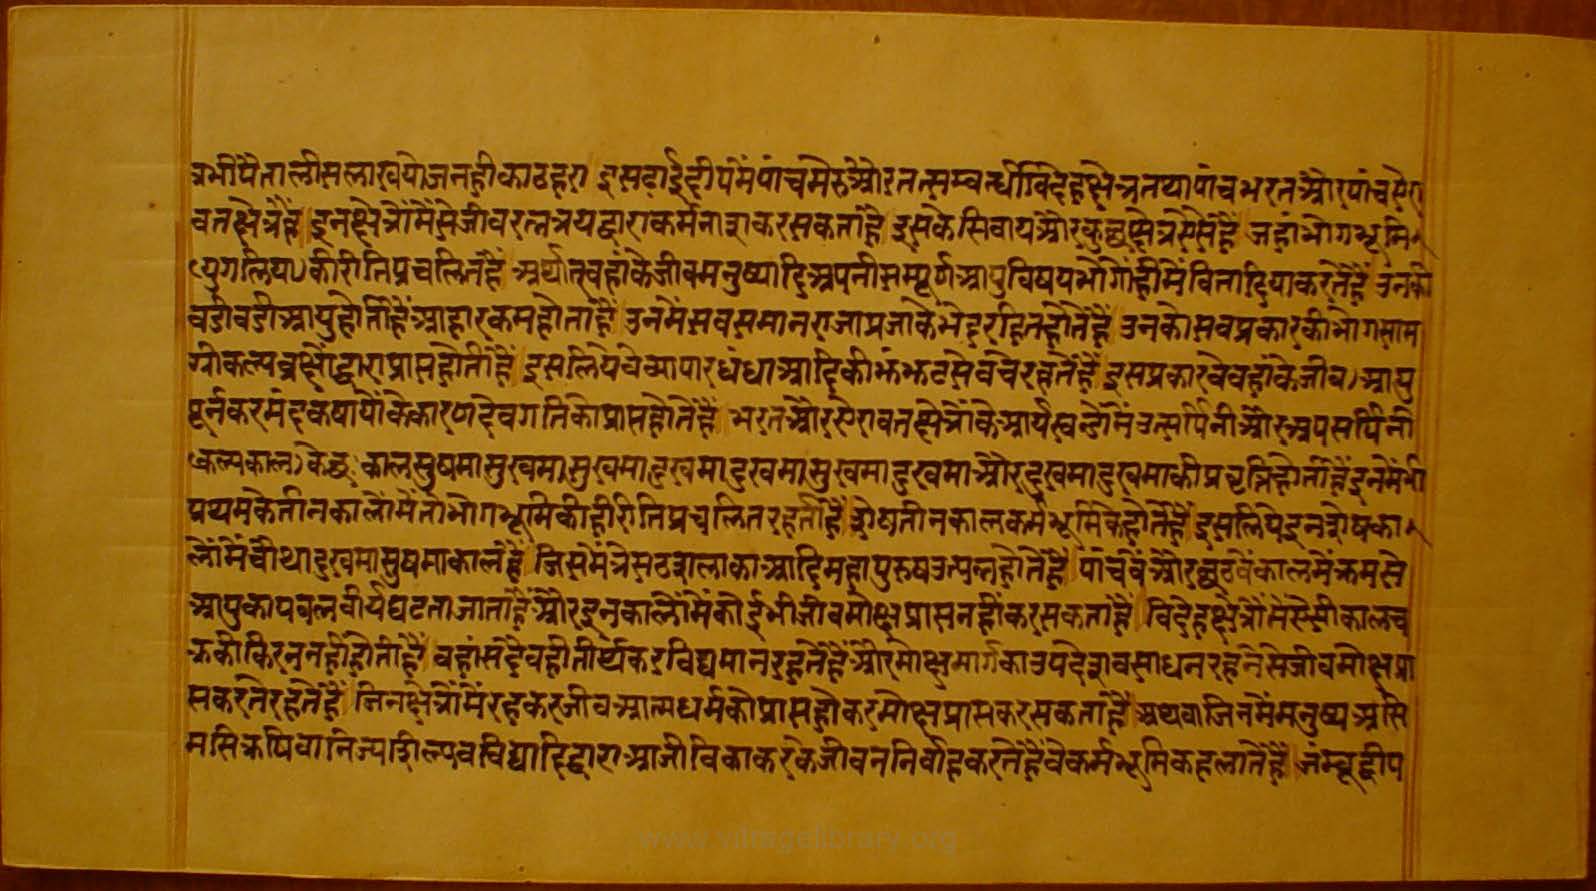 त्रभीपैतालीसलाखयोजनहीकाठहरा इसढाईद्वीपमेंपांचमेरुऔरतत्सम्बन्धीविदेहक्षेत्रतथापांचभरतऔरपांचऐरा
वतक्षेत्रहैं इनक्षेत्रोंमेंसेजीवरत्नत्रयद्वाराकर्मनाशकरसकताहै इसकेसिवायऔरकुछक्षेत्रऐसेहैं जहांभोगभूमि
(युगलिया)कीरीतिप्रचलितहै अर्थात्वहांकेजीवमनुष्यादिअपनीसम्पूर्णआयुविषयभोगोंहीमेंवितादियाकरतेहैं उनकी
वडीवडीआयुहोतीहैंआहारकमहोताहै उनमेंसवसमानराजाप्रजाकेभेदरहितहोतेहैं उनकोसवप्रकारकीभोगसाम
ग्रीकल्पवृक्षोंद्वाराप्राप्तहोतीहैं इसलियेवेव्यापारधंधाआदिकीझंझटसेवचेरहतेहैं इसप्रकारवेवहांकेजीव)आयु
पूर्नकरमंदकषायोंकेकारणदेवगतिकोप्राप्तहोतेहैं भरतऔरऐरावतक्षेत्रोंकेआर्यखन्डोंमेंउत्सर्पिनीऔरअपसर्पिनी
(कल्पकाल)केछः कालसुषमासुखमा,सुखमा,दुखमा,दुखमासुखमा,दुखमाऔरदुखमादुखमाकीप्रवृत्तिहोतीहैंइनमेंभी
प्रथमकेतीनकालोंमेंतोभोगभूमिकीहीरीतिप्रचलितरहतीहै शेषतीनकालकर्मभूमिकेहोतेहैं इसलियेइनशेषका
लोंमेंचौथादुखमासुषमाकालहै जिसमेंत्रेसठशलाकाआदिमहापुरुषउत्पन्नहोतेहैं पांचवेंऔरछठवेंकालमेंक्रमसे
आयुकायवलवीर्यघटताजाताहैऔरइनकालोंमेंकोईभीजीवमोक्षप्राप्तनहींकरसकताहै विदेहक्षेत्रोंमेंऐसीकालच
क्रकीफिरननहींहोतीहै वहांसदैवहीतीर्थंकरविद्यमानरहतेहैंऔरमोक्षमार्गकाउपदेशवसाधनरहनेसेजीवमोक्षप्रा
प्तकरतेरहतेहैं जिनक्षेत्रोंमेंरहकरजीवआत्मधर्मकोप्राप्तहोकरमोक्षप्राप्तकरसकताहै अथवाजिनमेंमनुष्यअसि
मसिक्रषिवानिज्यशिल्पवविद्यादिद्वाराआजीविकाकरकेजीवननिर्वाहकरतेहैंवेकर्मभूमिकहलातेहैं जंम्बूद्वीप
www.villagelibrary.org